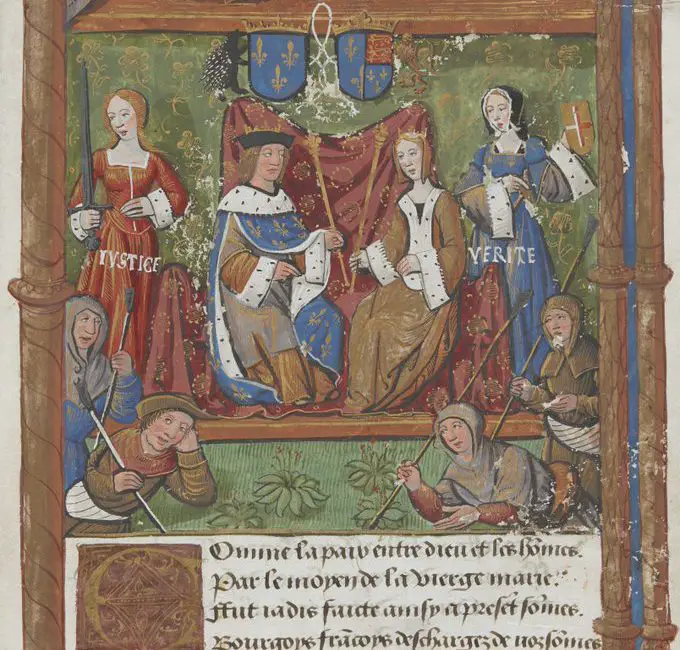 IVSTICE
VERITE
COmme la paix entre dieu et les hōmes.
Par le moyen de la vierge marie.
Fut iadis faicte ainsy a presēt sōmes.
Bourgoys frācoys deschargez de noz sōmes